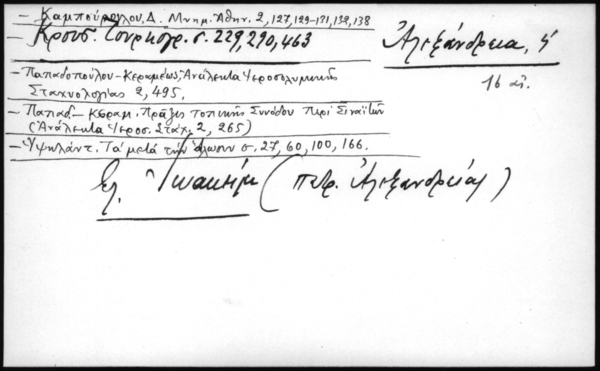 – Καμπούρογλου, Δ. Μνημ. Ἀθην. 2, 127, 129-131, 132, 138
– Κρουσ. Τουρκογρ. σ. 229, 290, 463
Ἀλεξάνδρεια,
16 αἰ.
– Παπαδοπούλου-Κεραμέως, Ἀνάλεκτα Ἱεροσολυμιτικῆς
Σταχυολογίας 2, 495.
– Παπαδ.-Κεραμ. Πρᾶξις τοπικῆς Συνόδου περὶ Σιναϊτῶν
(Ἀνάλεκτα Ἱεροσ. Σταχ. 2, 265)
– Ὑψηλάντ. Τὰ μετὰ τὴν ἅλωσιν σ. 27, 60, 100, 166.
Ἰωακείμ (πατρ. Ἀλεξανδρείας)